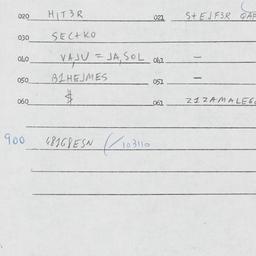 020 HIT3R 021 S+EJF3R GAB
030 SEC+KO
040 VAJU = JA,SOL 041 –
050 B1HEJMES 051 –
060 $ 061 212AMALEG
900 (/103110